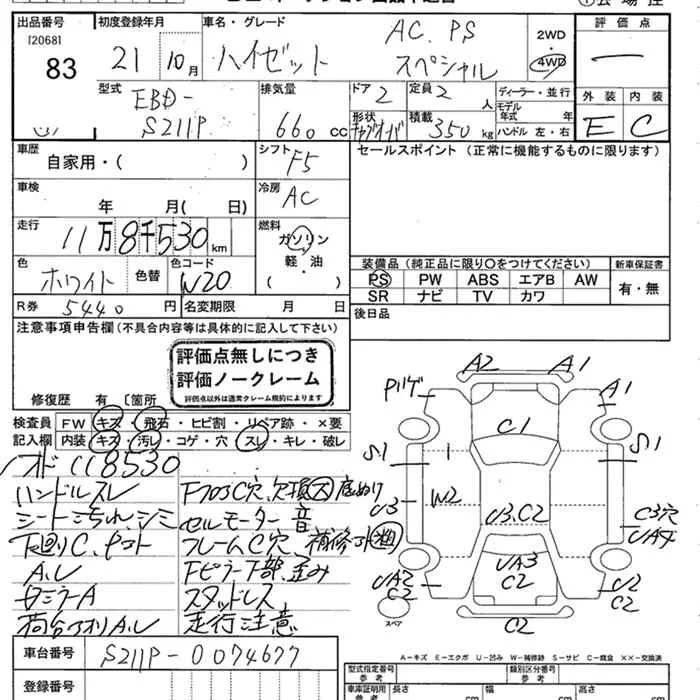 出品番号
[2068]
83
初度登録年月
21 10月
車名・グレード
ハイゼット AC. PS スペシャル
2WD
・
4WD
評価点
型式
EBD-
S211P
排気量
660 cc
ドア 2
定員 2 人
形状
積載 350 kg
ディーラー・並行
モデル
年式 年
ハンドル 左・右
外装 内装
E C
車歴
自家用・( )
シフト F5
セールスポイント (正常に機能するものに限ります)
車検
年 月( 日)
冷房 AC
走行
11万8千530km
燃料
ガソリン
軽・油
( )
色
ホワイト
色替
色コード
W20
装備品 (純正品に限り〇をつけてください)
新車保証書
PS PW ABS エアB AW
SR ナビ TV カワ
有・無
R券 5440 円
名変期限 月 日
後日品
注意事項申告欄 (不具合内容等は具体的に記入して下さい)
評価点無しにつき
評価ノークレーム
評価点以外は通常クレーム規約によります
修復歴 有 〔箇所
検査員
記入欄
FW キズ・飛石・ヒビ割・リペア跡・×要
内装 キズ・汚レ・コゲ・穴・スレ・キレ・破レ
118530
ハンドルスレ
F フロアC穴、欠損
シート汚れ、シミ
セルモーター音
下廻りC、
フレームC穴、補修
A.U
Fピラー下部、歪み
スタッドレス
荷台アオリA.U
走行注意
A2 A1
A1
C1
S1 S1
W2
U3 U3、C2
C3穴
UA4
UA3
C2
UA2
C2
U2
C2
C2
スペア
A-キズ E-エクボ U-凹み W-補修跡 S-サビ C-腐食 ××-交換済
車台番号
S211P-0074677
登録番号
型式指定番号
参考
類別区分番号
参考
車庫証明用
参考
長さ cm
幅 cm
高さ cm